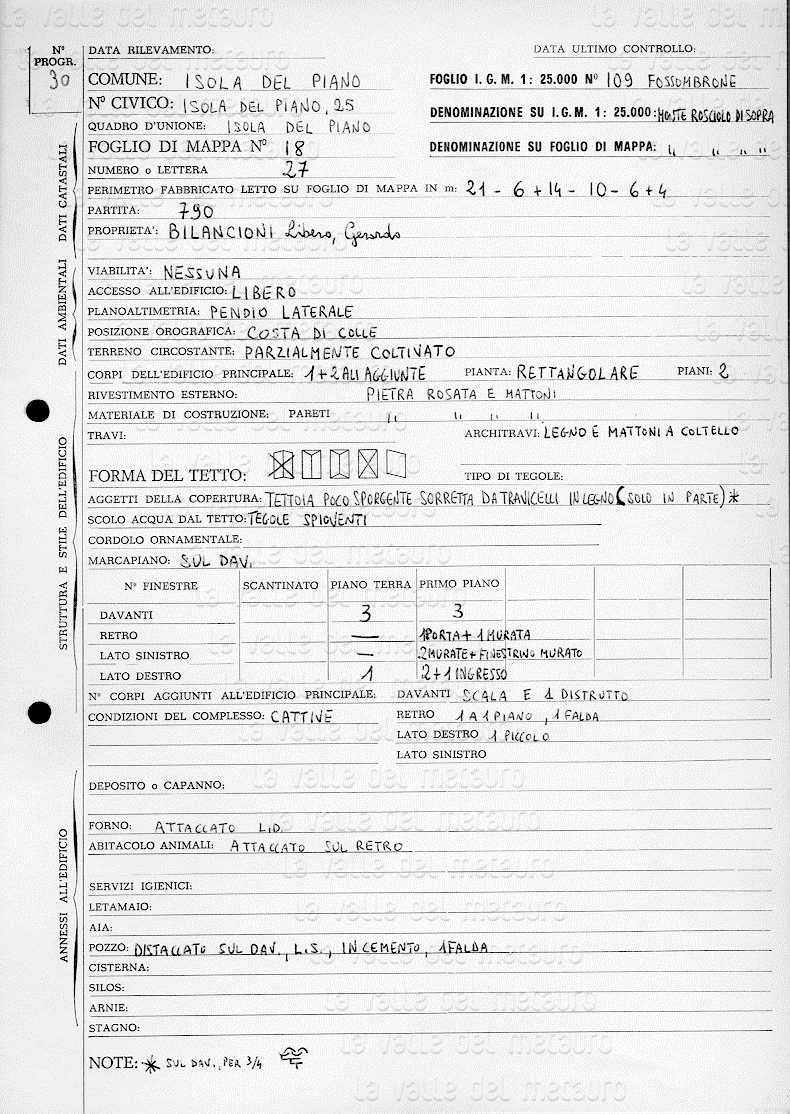 N° PROGR. 30
DATA RILEVAMENTO: DATA ULTIMO CONTROLLO:
COMUNE: ISOLA DEL PIANO FOGLIO I. G. M. 1: 25.000 N° 109 FOSSOMBRONE
N° CIVICO: ISOLA DEL PIANO, 25 DENOMINAZIONE SU I. G. M. 1: 25.000: MONTE ROSCIOLO DI SOPRA
QUADRO D'UNIONE: ISOLA DEL PIANO
FOGLIO DI MAPPA N° 18 DENOMINAZIONE SU FOGLIO DI MAPPA: " " " "
NUMERO o LETTERA 27
PERIMETRO FABBRICATO LETTO SU FOGLIO DI MAPPA IN m: 21 - 6 + 14 - 10 - 6 + 4
PARTITA: 790
PROPRIETA': BILANCIONI Libero, Gerardo
DATI CATASTALI
VIABILITA': NESSUNA
ACCESSO ALL'EDIFICIO: LIBERO
PLANOALTIMETRIA: PENDIO LATERALE
POSIZIONE OROGRAFICA: COSTA DI COLLE
TERRENO CIRCOSTANTE: PARZIALMENTE COLTIVATO
DATI AMBIENTALI
CORPI DELL'EDIFICIO PRINCIPALE: 1 + 2 ALI AGGIUNTE PIANTA: RETTANGOLARE PIANI: 2
RIVESTIMENTO ESTERNO: PIETRA ROSATA E MATTONI
MATERIALE DI COSTRUZIONE: PARETI " " " "
TRAVI: ARCHITRAVI: LEGNO E MATTONI A COLTELLO
FORMA DEL TETTO: TIPO DI TEGOLE:
AGGETTI DELLA COPERTURA: TETTOIA POCO SPORGENTE SORRETTA DA TRAVICELLI IN LEGNO (SOLO IN PARTE) *
SCOLO ACQUA DAL TETTO: TEGOLE SPIOVENTI
CORDOLO ORNAMENTALE:
MARCAPIANO: SUL DAV.
STRUTTURA E STILE DELL'EDIFICIO
N° FINESTRE SCANTINATO PIANO TERRA PRIMO PIANO
DAVANTI 3 3
RETRO — 1 PORTA + 1 MURATA
LATO SINISTRO — 2 MURATE + FINESTRINO MURATO
LATO DESTRO 1 2 + 1 INGRESSO
N° CORPI AGGIUNTI ALL'EDIFICIO PRINCIPALE: DAVANTI SCALA E 1 DISTRUTTO
CONDIZIONI DEL COMPLESSO: CATTIVE RETRO 1 A 1 PIANO, 1 FALDA
LATO DESTRO 1 PICCOLO
LATO SINISTRO
DEPOSITO o CAPANNO:
FORNO: ATTACCATO L.D.
ABITACOLO ANIMALI: ATTACCATO SUL RETRO
SERVIZI IGIENICI:
LETAMAIO:
AIA:
POZZO: DISTACCATO SUL DAV., L.S., IN CEMENTO, 1 FALDA
CISTERNA:
SILOS:
ARNIE:
STAGNO:
ANNESSI ALL'EDIFICIO
NOTE: * SUL DAV., PER 3/4
La valle del metauro